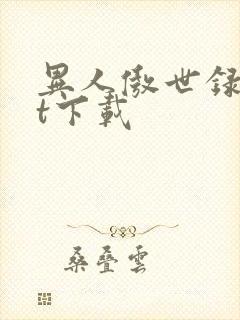 異人傲世録
t下載
桑叠雲